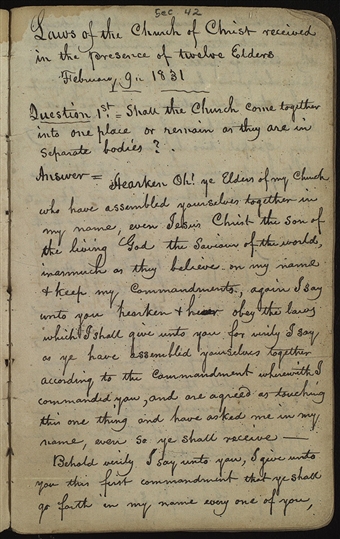 Sec 42
Laws of the Church of Christ received
in the presence of twelve Elders
February 9th 1831
Question 1st = Shall the Church come together
into one place or remain as they are in
separate bodies?
Answer = Hearken Oh! ye Elders of my Church
who have assembled yourselves together in
my name, even Jesus Christ the Son of
the living God the Saviour of the world,
inasmuch as they believe on my name
& keep my Commandments, again I say
unto you hearken & hear obey the laws
which I shall give unto you for verily I say,
as ye have assembled yourselves together
according to the Commandment wherewith I
commanded you, and are agreed as touching
this one thing and have asked me in my
name, even so ye shall receive —
Behold verily I say unto you, I give unto
you this first commandment that ye shall
go forth in my name every one of you,